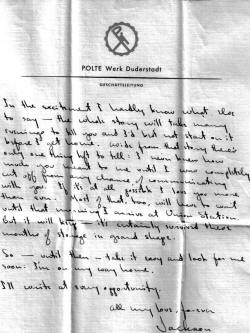 POLTE Werk Duderstadt
GESCHÄFTSLEITUNG
In the excitement I hardly know what else
to say — the whole story will take many
evenings to tell you and I'd but not start on it
before I get home. Aside from that story there's
only one thing left to tell: I never knew how
much you meant to me until I was completely
cut off from any chance of communicating
with you. If it's at all possible I love you more
than ever. Most of that, too, will have to wait
until that morning I arrive at Union Station.
But it will keep — it's certainly survived these
months of storage in grand shape.
So — until then — take it easy and look for me
soon. I'm on my way home.
I'll write at every opportunity.
All my love, forever
Jackson